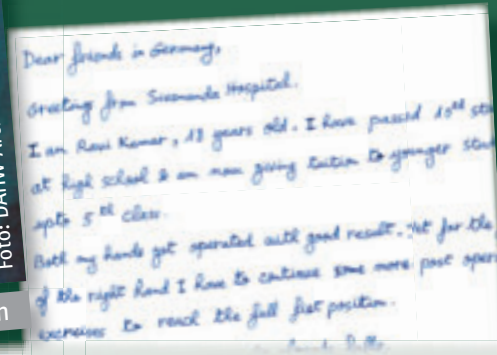 Dear friends in Germany,
Greetings from Hospital.
I am Ravi Kumar, 18 years old. I have passed 10th
at high school & am now giving tuition to younger
upto 5th class.
Both my hands got operated with good result. Yet for the
of the right hand I have to continue some more post
exercises to reach the full fist position.
Foto: DAHW